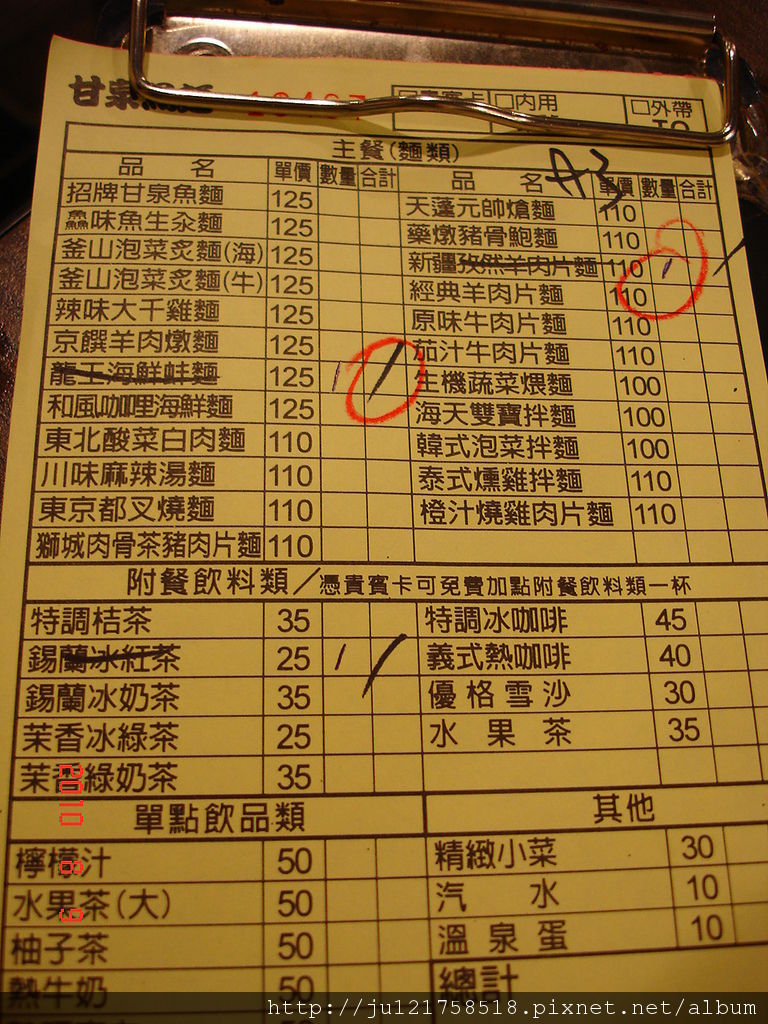 甘泉
□內用
□外帶
主餐(麵類)
A3
品 名 單價 數量 合計 品 名 單價 數量 合計
招牌甘泉魚麵 125 天蓬元帥熗麵 110
鱻味魚生汆麵 125 藥燉豬骨鮑麵 110
釜山泡菜炙麵(海) 125 新疆孜然羊肉片麵 110 1
釜山泡菜炙麵(牛) 125 經典羊肉片麵 110
辣味大千雞麵 125 原味牛肉片麵 110
京饌羊肉燉麵 125 茄汁牛肉片麵 110
龍王海鮮蚌麵 125 1 生機蔬菜煨麵 100
和風咖哩海鮮麵 125 海天雙寶拌麵 100
東北酸菜白肉麵 110 韓式泡菜拌麵 100
川味麻辣湯麵 110 泰式燻雞拌麵 110
東京都叉燒麵 110 橙汁燒雞肉片麵 110
獅城肉骨茶豬肉片麵 110
附餐飲料類/憑貴賓卡可免費加點附餐飲料類一杯
特調桔茶 35 特調冰咖啡 45
錫蘭冰紅茶 25 1 義式熱咖啡 40
錫蘭冰奶茶 35 優格雪沙 30
茉香冰綠茶 25 水果茶 35
茉香綠奶茶 35
單點飲品類 其他
檸檬汁 50 精緻小菜 30
水果茶(大) 50 汽水 10
柚子茶 50 溫泉蛋 10
熱牛奶 50 總計
2010 8 9
http://ju121758518.pixnet.net/album